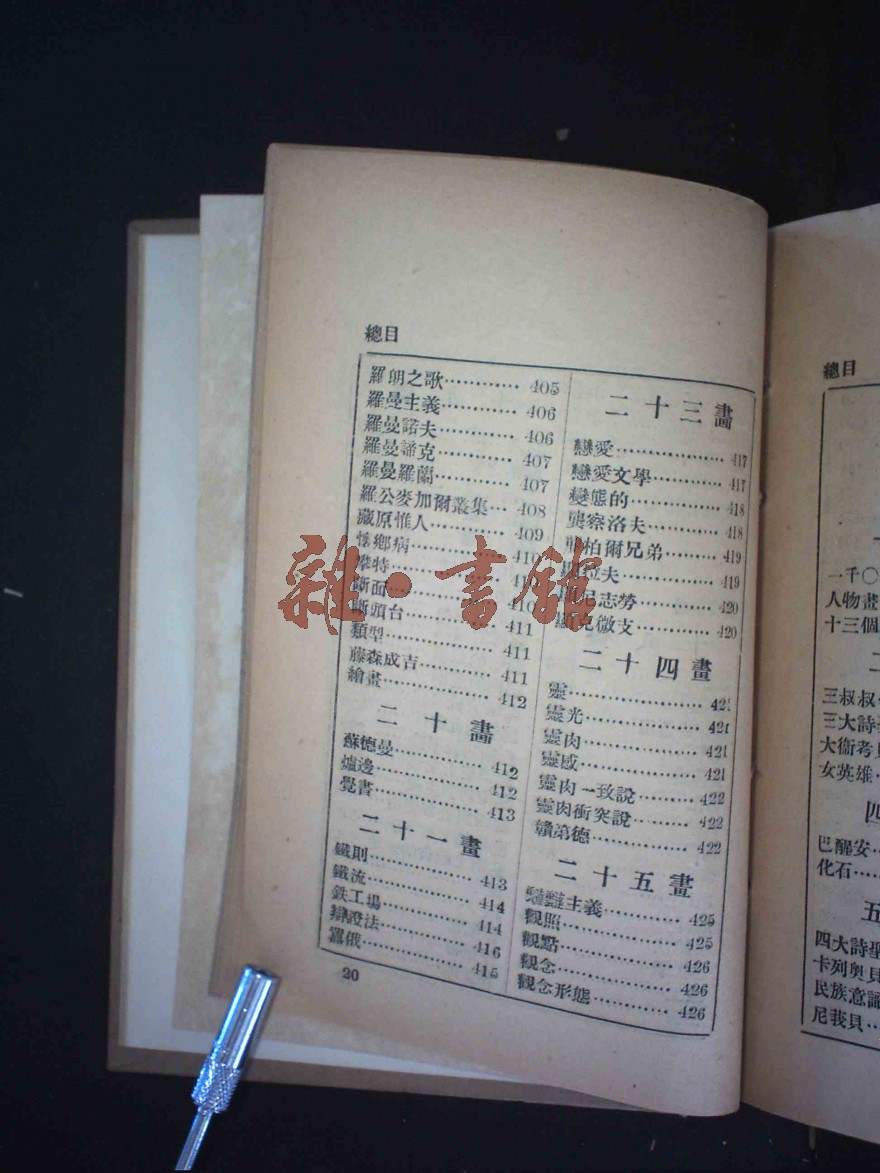 總目
羅朗之歌………… 405
羅曼主義………… 406
羅曼諾夫………… 406
羅曼諦克………… 407
羅曼羅蘭………… 407
羅公麥加爾叢集… 408
藏原惟人………… 409
鄉病………… 410
特…………
面………… 410
頭台………… 411
類型………… 411
藤森成吉………… 411
繪畫………… 412
二十畫
蘇德曼………… 412
爐邊………… 412
覺書………… 413
二十一畫
鐵則………… 413
鐵流………… 414
鉄工場………… 414
辯證法………… 416
囂俄………… 415
20
二十三畫
戀愛………… 417
戀愛文學………… 417
變態的………… 418
龔察洛夫………… 418
柏爾兄弟………… 419
拉夫………… 419
尼志勞………… 420
克微支………… 420
二十四畫
靈………… 421
靈光………… 421
靈肉………… 421
靈感………… 421
靈肉一致說……… 422
靈肉衝突說……… 422
贛第德………… 422
二十五畫
主義………… 425
觀照………… 425
觀點………… 426
觀念………… 426
觀念形態……… 426
雜·書館
總目
一千〇
人物畫
十三個
三叔叔
三大詩
大衞考
女英雄
四
巴醒安
化石
五
四大詩聖
卡列奧貝
民族意識
尼莪貝